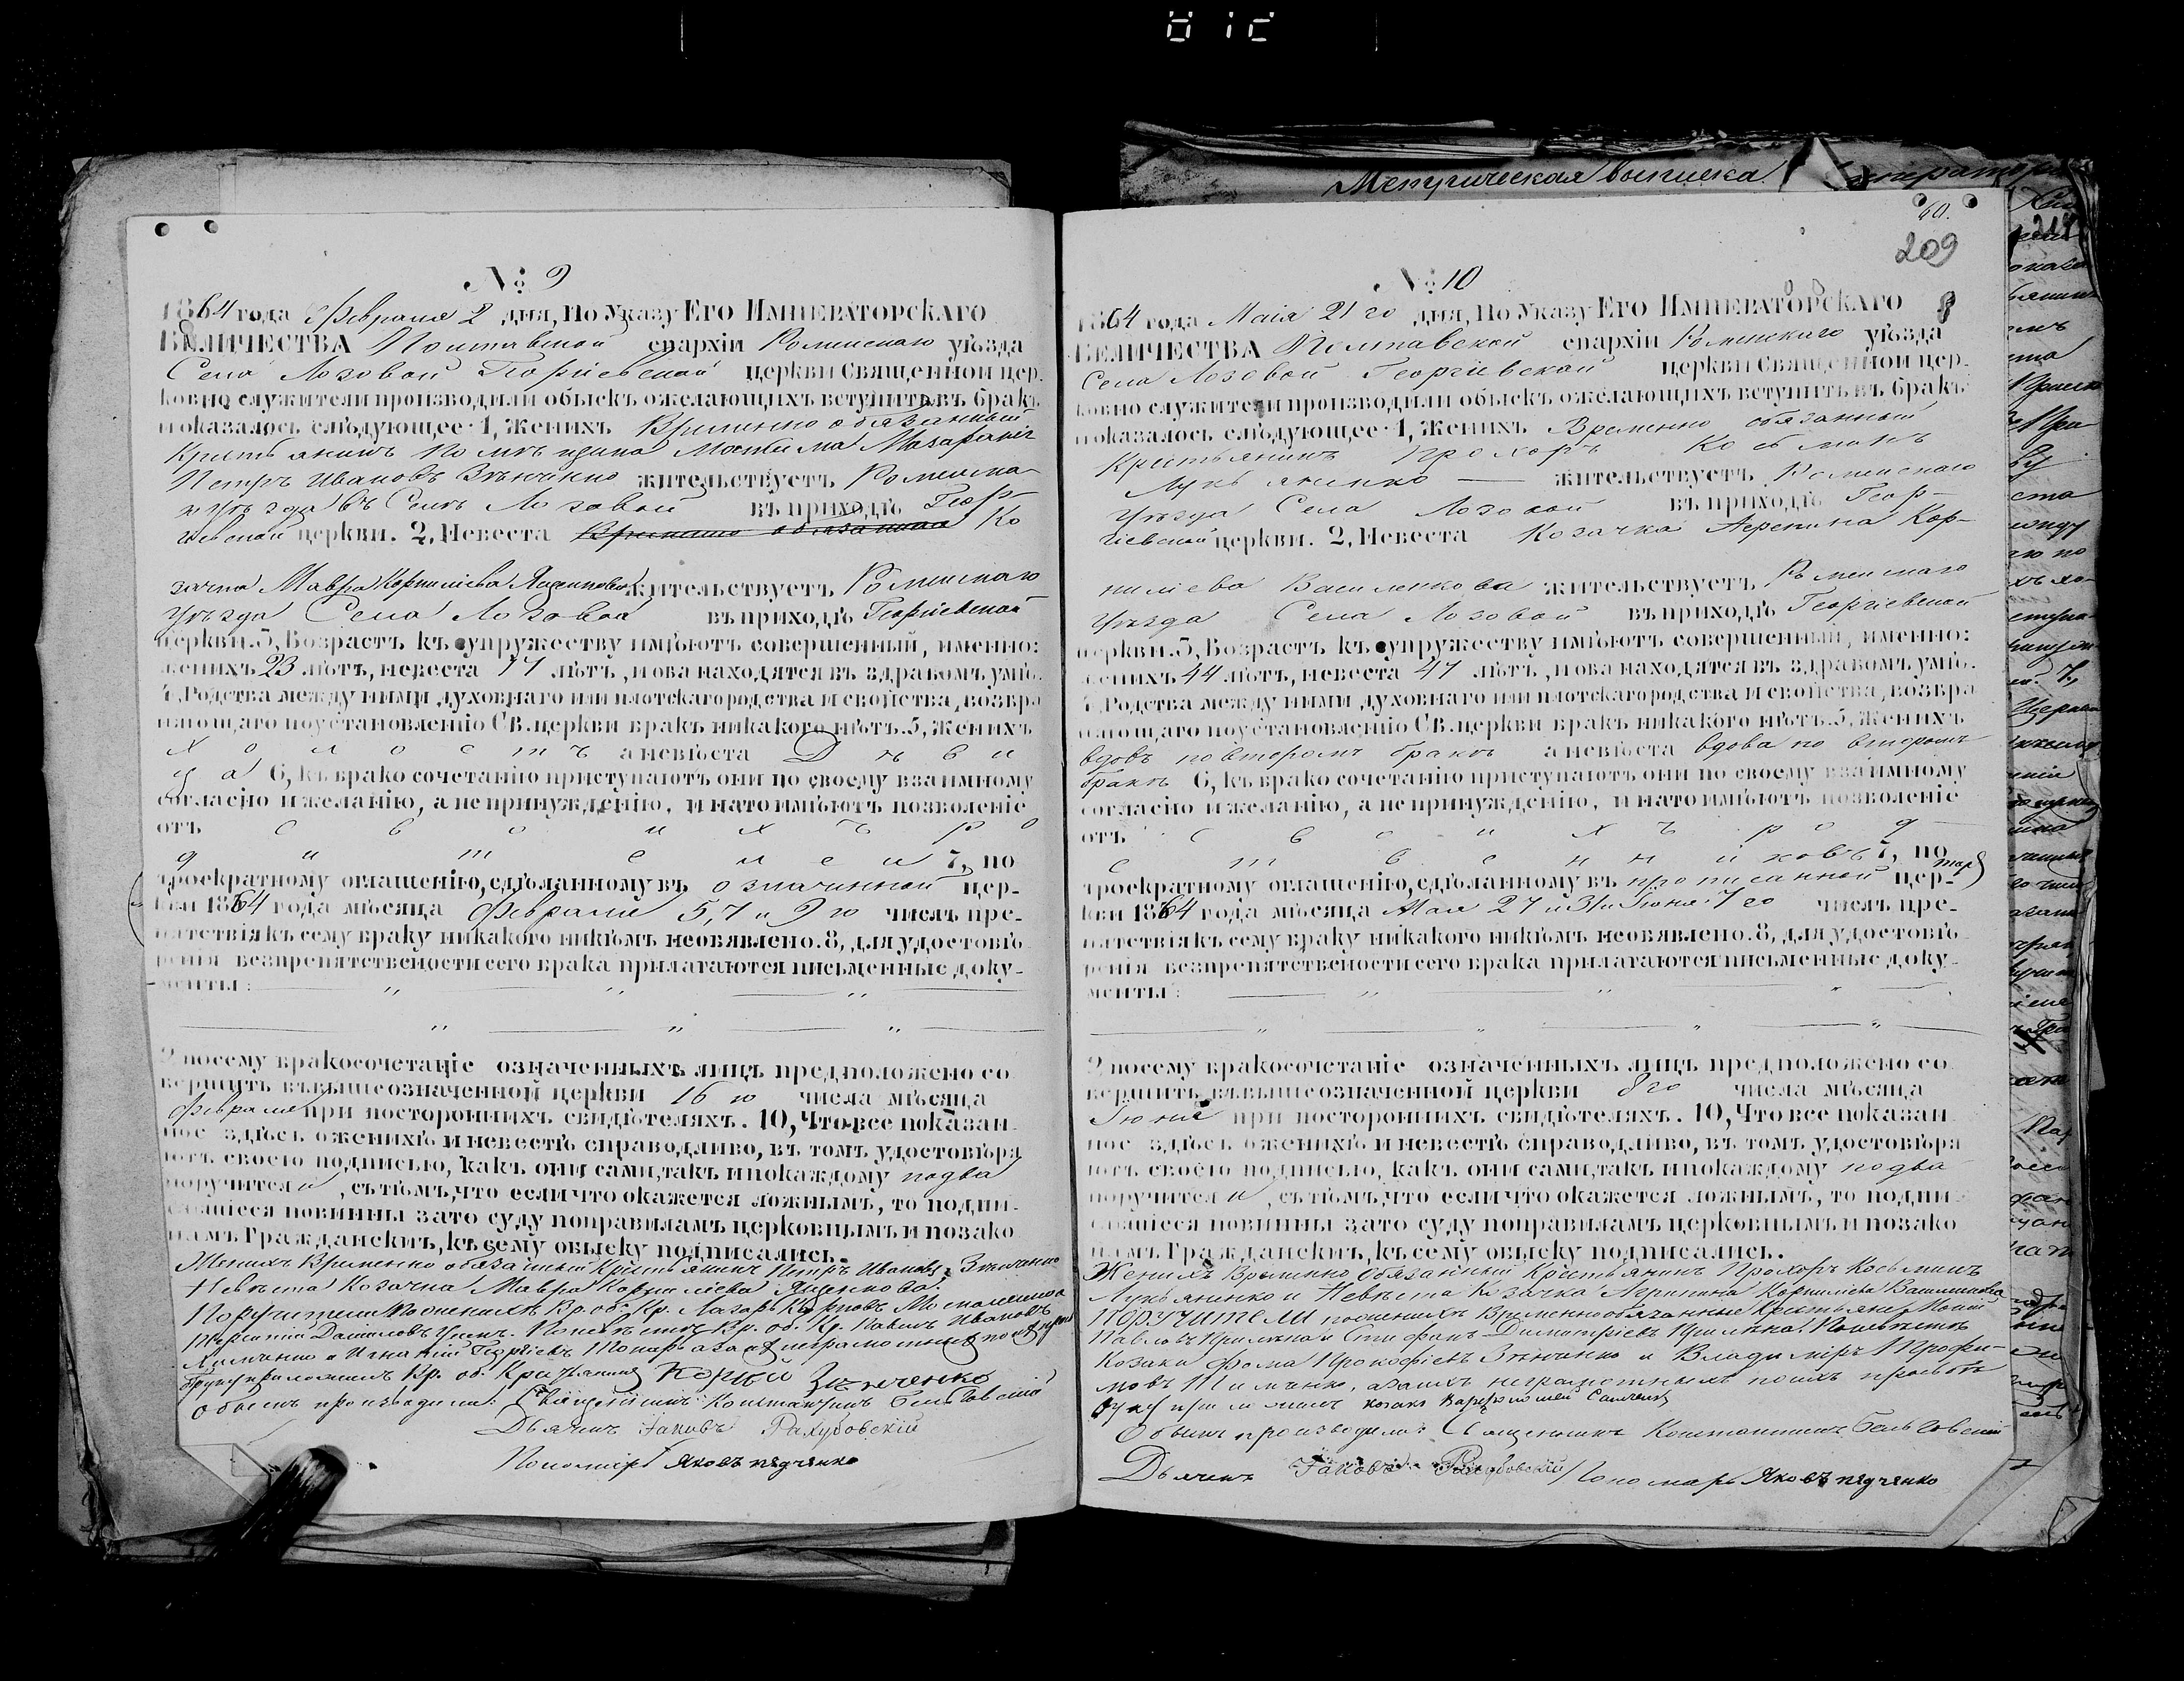 Метрическая выписка
60.
209
№ 9
1864 года Февраля 2 дня, По Указу Его Императорскаго
Величества Полтавской епархіи Роменскаго уѣзда
Села Лозовой Георгіевской церкви Священной цер-
ковно служители производили обыскъ ожелающихъ вступить въ бракъ
и оказалось слѣдующее. 1, Женихъ Временно обязанный
Крестьянинъ
Петръ Ивановъ Зѣнченко жительствуетъ Роменска-
го уѣзда въ Селѣ Лозовой въ приходѣ Геор-
гіевской церкви. 2, Невеста Временно обязанная Ко
зачка Мавра Корниліева Яценкова жительствуетъ Роменскаго
уѣзда Села Лозовой въ приходѣ Георгіевской
церкви. 3, Возрастъ къ супружеству имѣютъ совершенный, именно:
женихъ 23 лѣтъ, невеста 17 лѣтъ, и оба находятся въ здравомъ умѣ.
4, Родства между ними духовнаго или плотскаго родства и свойства, возбра
няющаго по установленію Св. церкви бракъ никакого нѣтъ. 5, Женихъ
холостъ а невѣста Дѣви
ца 6, къ брако сочетанію приступаютъ они по своему взаимному
согласію и желанію, а не принужденію, и на то имѣютъ позволеніе
отъ своихъ ро
дителей 7, по
троекратному оглашенію, сдѣланному въ означенной цер-
кви 1864 года мѣсяца Февраля 5, 7 и 9 го числъ пре-
пятствія къ сему браку никакого никѣмъ необявлено. 8, для удостовѣ
ренія безпрепятствености сего брака прилагаются письменные доку-
менты:
9 посему бракосочетаніе означенныхъ лицъ предположено со
вершить въ вышеозначенной церкви 16 го числа мѣсяца
февраля при постороннихъ свидѣтеляхъ. 10, Что все показан
ное здѣсь о женихѣ и невестѣ справодливо, въ томъ удостовѣря
ютъ своею подписью, какъ они сами, такъ и по каждому по два
поручители, съ тѣмъ, что если что окажется ложнымъ, то подпи
савшіеся повинны за то суду по правиламъ церковнымъ и по зако
намъ Гражданскиъ, къ сему обыску подписались.
Женихъ Временно обязанный Крестьянинъ Петръ Ивановъ Зѣнченко
Невѣста Козачка Мавра Корниліева Яценкова.
Поручители По женихѣ Вр. об. Кр. Лазарь Карповъ
Даниловъ По невѣстѣ Вр. об. Кр. Павелъ Ивановъ
и Игнатій Георгіевъ
руку приложилъ Вр. об. Кре Корній Зѣнченко
Обыскъ производили: Священникъ Константинъ Бельговскій
Дьячекъ Іаковъ Рахубовскій
Пономарь Яковъ пядченко
№ 10
1864 года Маія 21 го дня, По Указу Его Императорскаго
Величества Полтавской епархіи Роменскаго уѣзда
Села Лозовой Георгіевской церкви Священной цер-
ковно служители производили обыскъ ожелающихъ вступить въ бракъ
и оказалось слѣдующее. 1, Женихъ Временно обязанный
Крестьянинъ Прохоръ Косьминъ
Лукьяненко жительствуетъ Роменскаго
уѣзда Села Лозовой въ приходѣ Геор-
гіевской церкви. 2, Невеста Козачка Агрепина Кор-
ниліева Василенкова жительствуетъ Роменскаго
уѣзда Села Лозовой въ приходѣ Георгіевской
церкви. 3, Возрастъ къ супружеству имѣютъ совершенный, именно:
женихъ 44 лѣтъ, невеста 47 лѣтъ, и оба находятся въ здравомъ умѣ.
4, Родства между ними духовнаго или плотскаго родства и свойства, возбра
няющаго по установленію Св. церкви бракъ никакого нѣтъ. 5, Женихъ
вдовъ по второмъ бракѣ а невѣста вдова по второмъ
бракѣ 6, къ брако сочетанію приступаютъ они по своему взаимному
согласію и желанію, а не принужденію, и на то имѣютъ позволеніе
отъ своихъ род
ственниковъ 7, по
троекратному оглашенію, сдѣланному въ прописанной цер-
кви 1864 года мѣсяца Мая 27 и 31 и Іюня 7 го числъ пре-
пятствія къ сему браку никакого никѣмъ необявлено. 8, для удостовѣ
ренія безпрепятствености сего брака прилагаются письменные доку-
менты:
9 посему бракосочетаніе означенныхъ лицъ предположено со
вершить въ вышеозначенной церкви 8 го числа мѣсяца
Іюня при постороннихъ свидѣтеляхъ. 10, Что все показан
ное здѣсь о женихѣ и невестѣ справодливо, въ томъ удостовѣря
ютъ своею подписью, какъ они сами, такъ и по каждому по два
поручители, съ тѣмъ, что если что окажется ложнымъ, то подпи
савшіеся повинны за то суду по правиламъ церковнымъ и по зако
намъ Гражданскиъ, къ сему обыску подписались.
Женихъ Временно Обязанный Крестьянинъ Прохоръ Косьминъ
Лукьяненко и Невѣста Козачка Агрипина Корнилиева Василенкова
Поручители по женихѣ Временно обязанные Крестьяне Моисей
Павловъ и Стефанъ Димитріевъ По невѣстѣ
Козаки Фома Прокофіевъ Зѣнченко и Владиміръ Трофи-
мовъ Тимченко, а за ихъ неграмотныхъ по ихъ прозьбѣ
руку приложилъ козакъ Варфоломей
Обыскъ производили: Священникъ Константинъ Бельговскій
Дьячекъ Іаковъ Рахубовскій Пономарь Яковъ пядченко